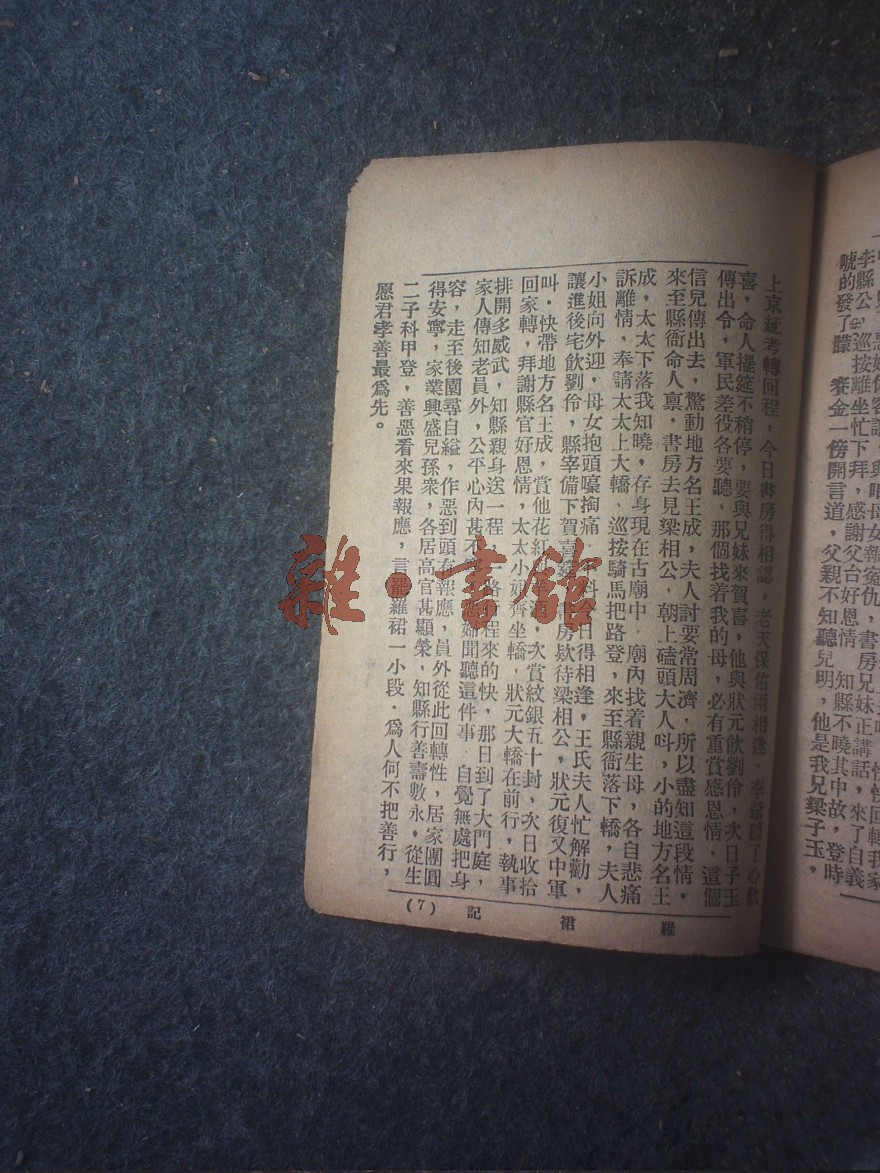 唬的發了朦 賽金一傍開言道，父親不知聽兒明，他是我兄梁子玉，
上京赶考轉回程，今日書房得相認，老天保佑兩相逢．李爺聽了心歡
喜，命人擺筵不稍停，要與兄妹來賀喜，他與狀元飲劉伶，次日子玉
傳出令，軍民差役各要聽．那個找着我的母，必有重賞感恩情，這個
信兒傳出去，驚動地方名王成，夫人討要常周濟，所以盡知這段情，
來至縣衙命人禀，書房去見梁相公，朝上磕頭大人呌，小的地方名王
成，太太下落我知曉，存身現在古廟中．廟內找着親生母，各自悲痛
訴離情，奉請太太上大轎．巡按騎馬把路登，來至縣衙落下轎，夫人
小姐向外迎，母女抱頭嚎掏痛 日得相逢，王氏夫人忙解勸，
讓進後宅飲劉伶，縣宰備下賀喜 房欵待梁相公，狀元復又中軍
叫，快帶地方名王成，賞他花紅 次賞紋銀五十封，次日收拾
回家轉，拜謝縣官好恩情，太太小姐齊坐轎，狀元大轎在前行，執事
排開多威武，知縣親身送一程， 路 程來的快，那日到了大門庭，
家人傳知老員外，公平心內甚不 婦聞聽這件事．自覺無處把身
容，走至後園尋自縊，作惡到頭有報應，員外從此回轉性，居家團圓
得安寧，家業興盛兒孫衆，各居高官甚顯榮，知縣行善壽數永，從生
二子科甲登，善惡看來果報應，言罷羅裙一小段．爲人何不把善行，
愿君孝善最爲先。
羅裙記 (7)
雜·書館